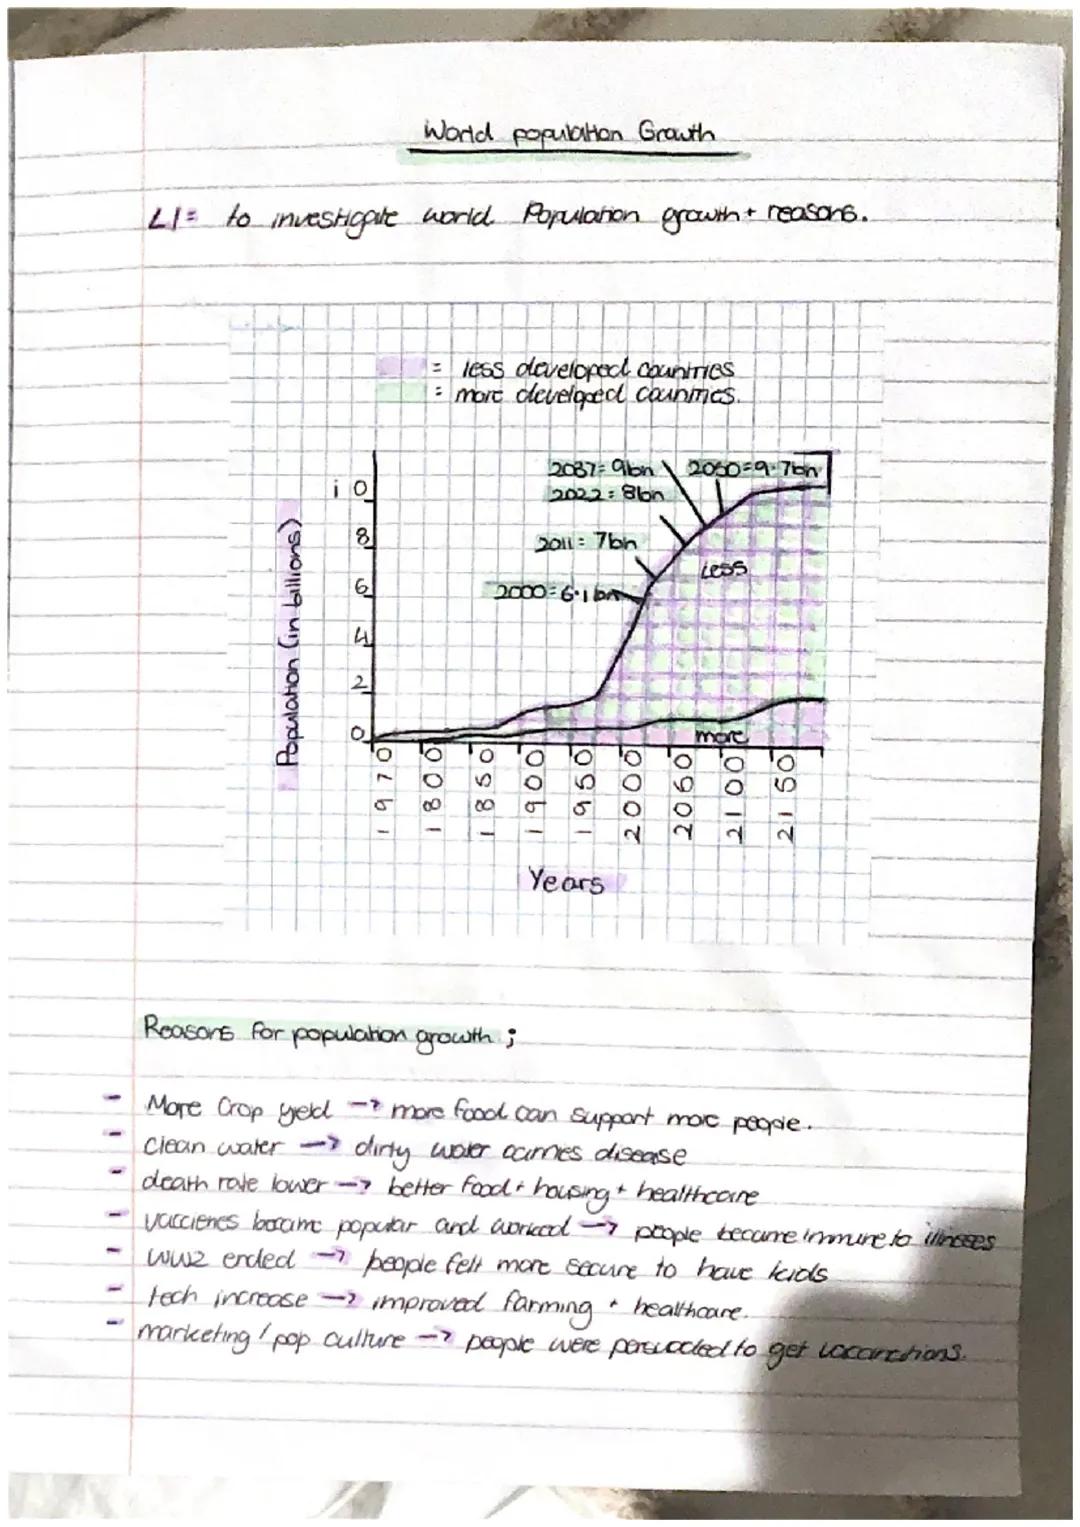 World population Growth
LI= to investigate world Population growth + reasons.
= less developed countries
= more developed countries.
2037= 9bn
2050=9.7bn
2022=8bn
2011= 7bn
2000=6.1bn
Less
more
Population (in billions)
10
8
6
4
2
0
1970
1800
1850
1900
1950
2000
2060
2100
2150
Years
Reasons for population growth ;
- More Crop yeld → more food can support more people.
- clean water → dirty water carries disease
- death rate lower → better food + housing + healthcare
- vaccienes became popular and worked → people became immune to illnesses
- WW2 ended → people felt more secure to have kids
- tech increase → improved farming + healthcare.
- marketing / pop culture → people were persuaded to get vaccinations.